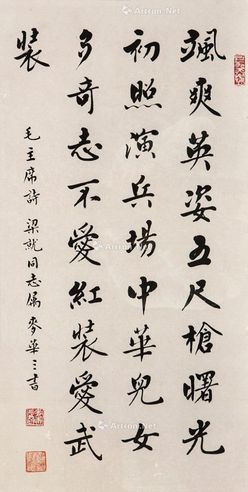 颯爽英姿五尺槍曙光
初照演兵場中華兒女
多奇志不愛紅裝愛武
裝
毛主席詩 梁就同志屬 麥華三書